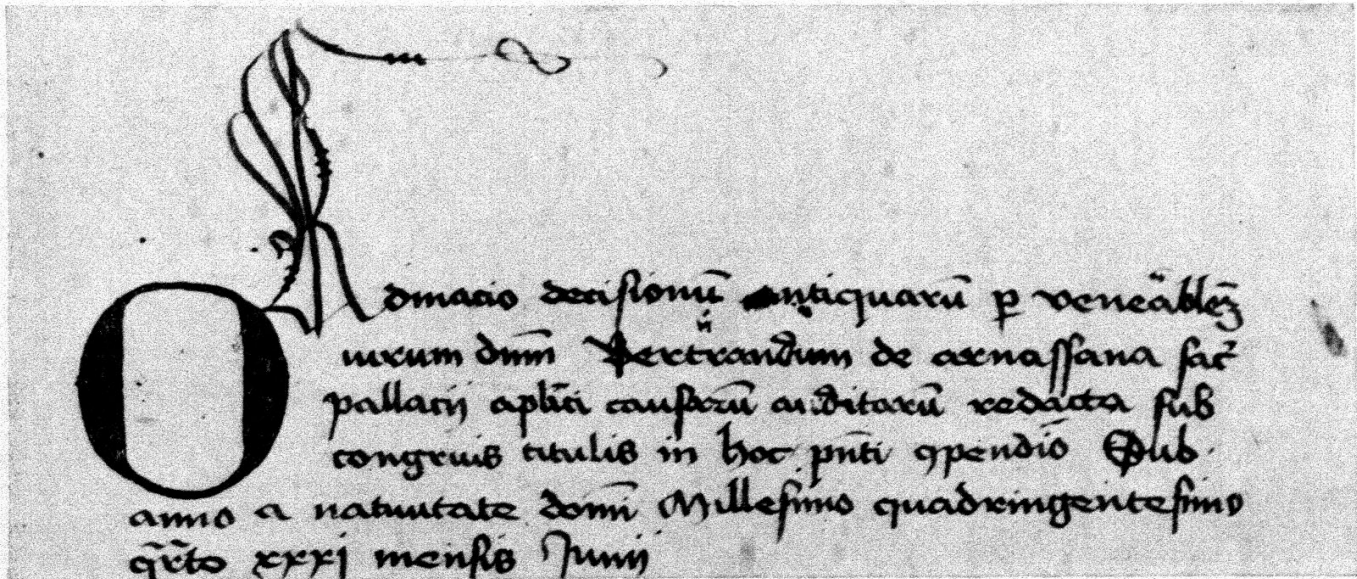 ORdinacio decisionū antiquarū p veneãblem
uirum dnm̄ Bertrandum de arnassana sac̄
pallacii aplīci causarū auditorū redacta sub
congruis titulis in hoc pn̄ti ꝯpendio Sub
anno a natiuitate domī Millesimo quadringentesimo
qr̄to xxxj mensis Junii